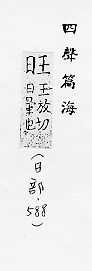 四聲篇海
旺
王放切
日暈也
(日部．588)